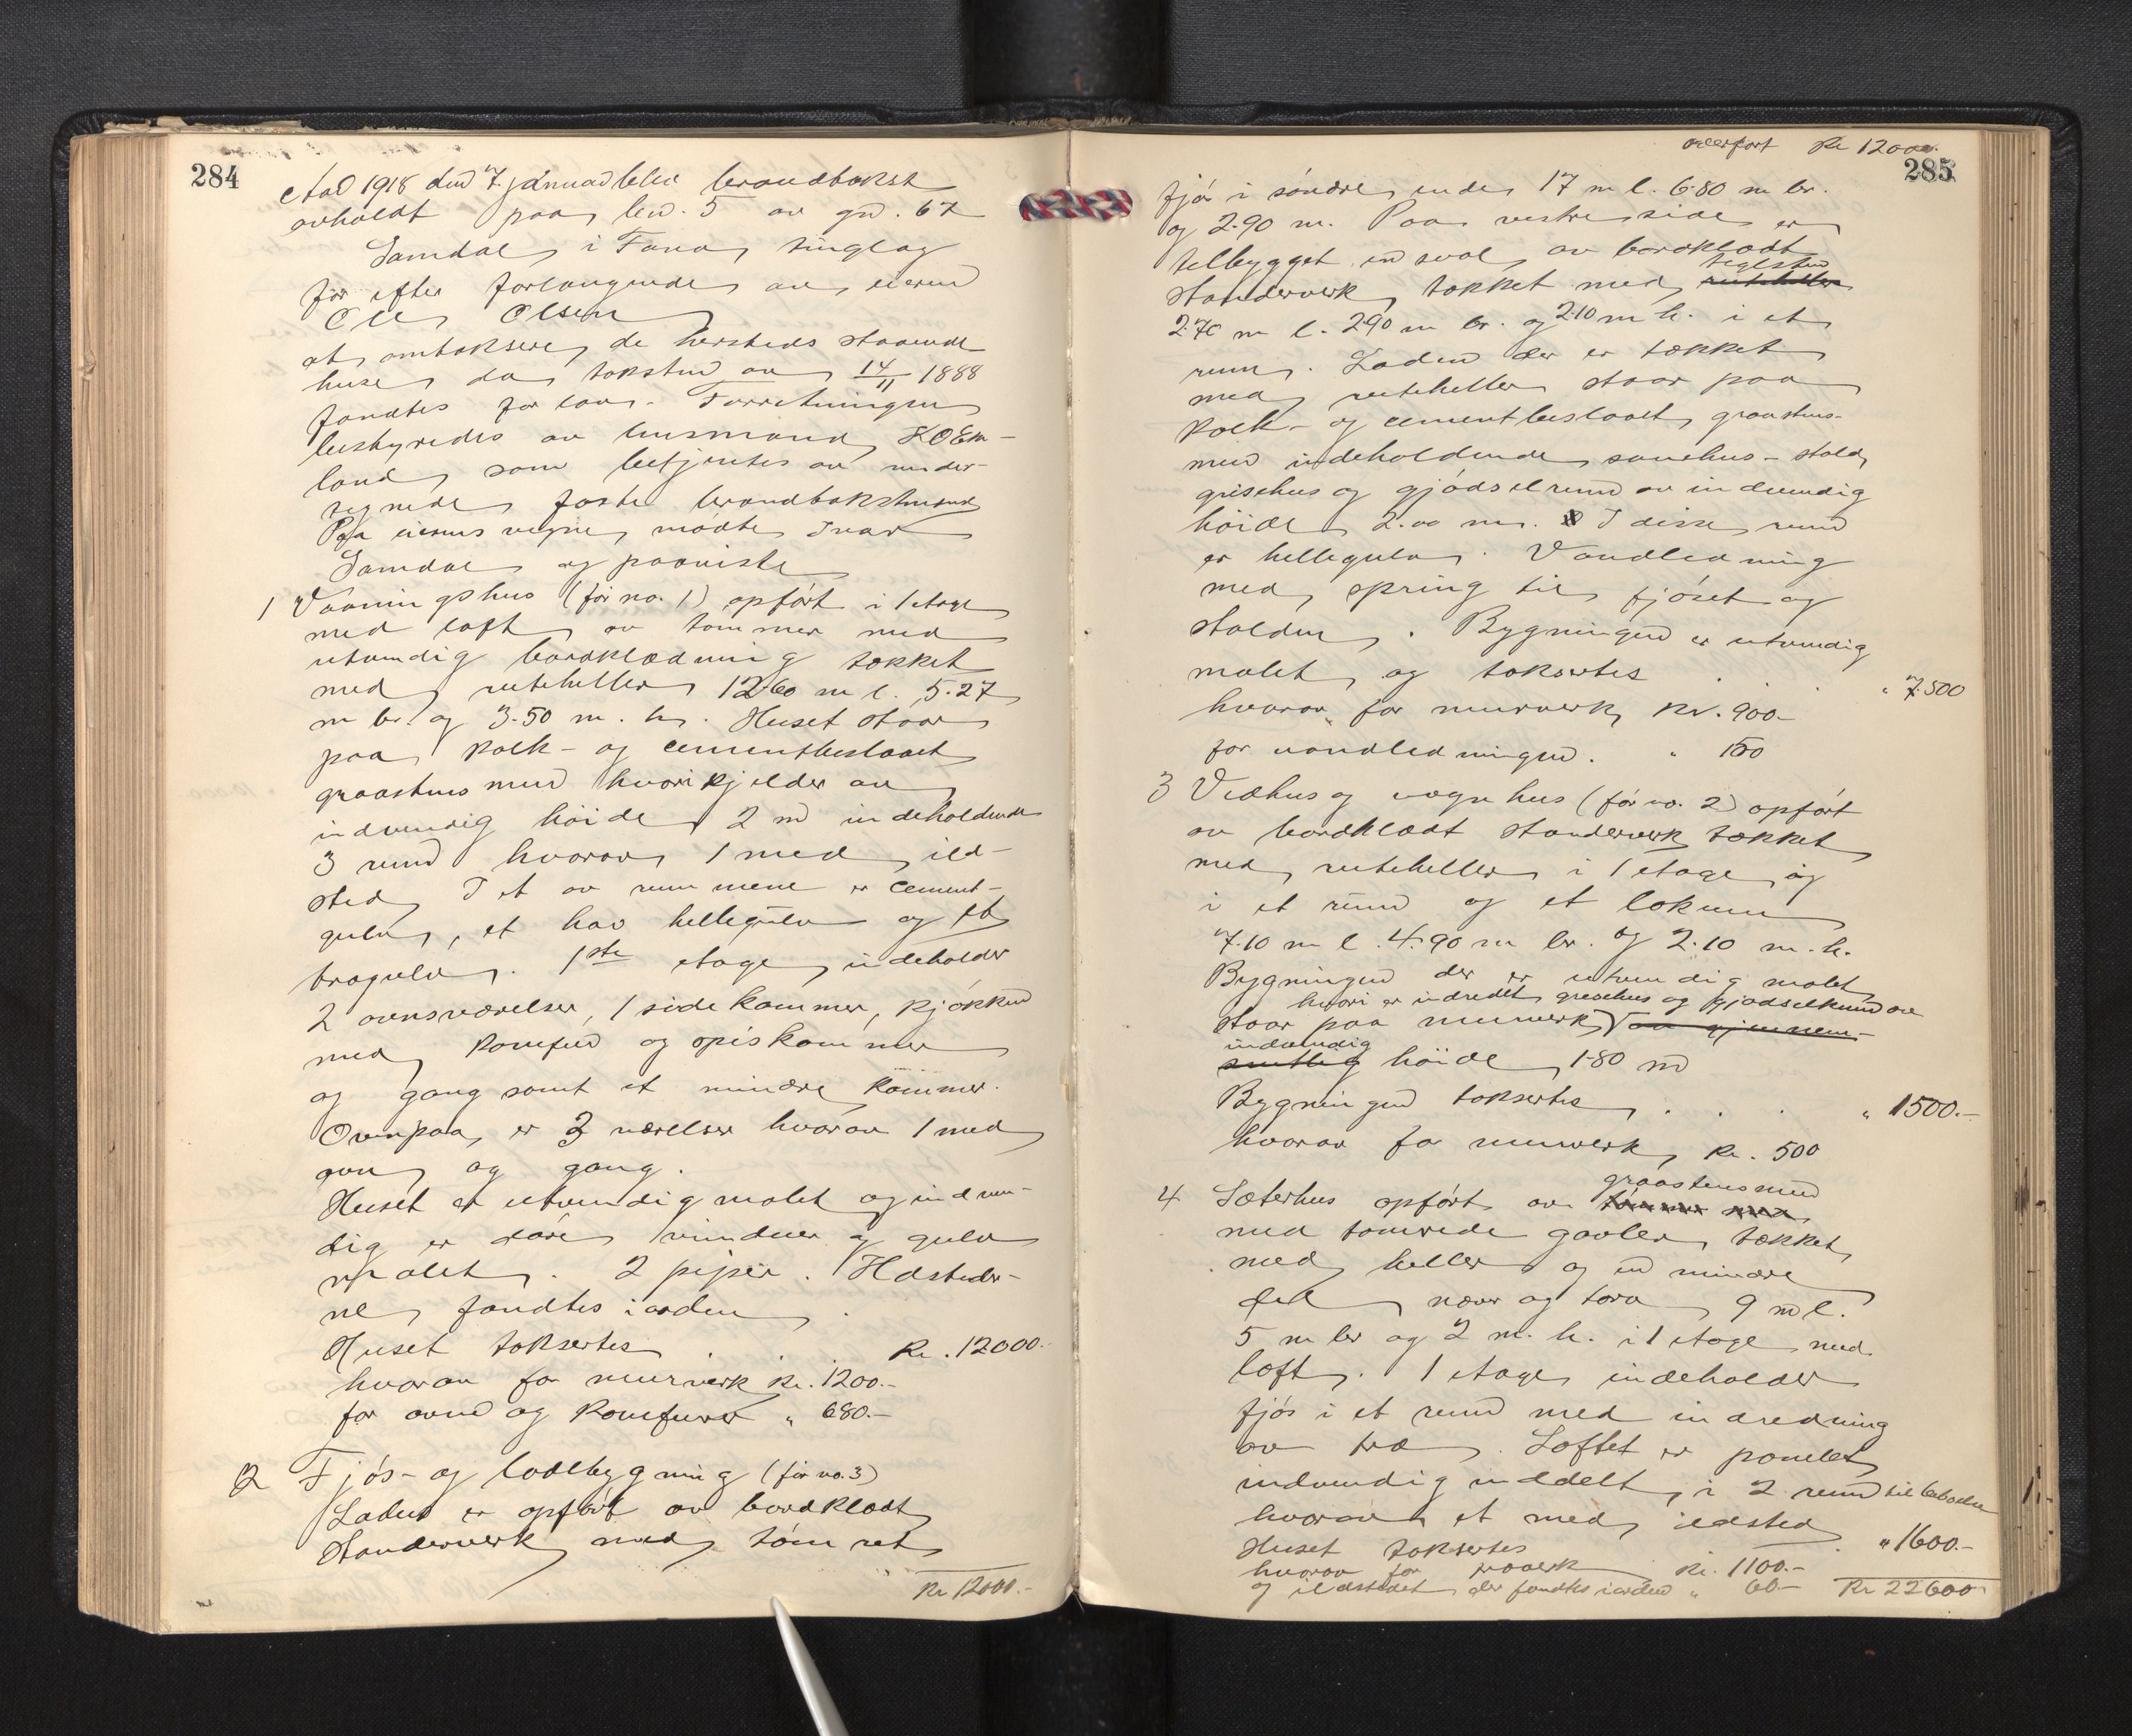 284
Aar 1918 den 7. januar blev brandtakst
avholdt paa bno. 5 av gno. 67
Samdal i Fana tinglag
før efter forlangende av eieren
Ole Olsen
at omtaksere de hersteds staaende
huse da taksten av 14/11 1888
fandtes for lav. Forretningen
bestyredes av lensmand K O Ek-
land som betjentes av under-
tegnede faste brandtakstmænd
Paa eierens vegne mødte Ivar
Samdal og paaviste
1 Vaaningshus (før no. 1) opført i 1 etage
med loft av tømmer med
utvendig bordklædning tækket
med ruteheller 12.60 m l. 5.27
m br. og 3.50 m. h. Huset staar
paa kalk- og cementbeslaaet
graastensmur hvori kjelder av
indvendig høide 2 m indeholdende
3 rum hvorav 1 med ild-
sted I et av rummene er cement-
gulv, et har hellegulv og et
trægulv. 1ste etage indeholder
2 ovnsværelser, 1 sidekammer, kjøkken
med komfur og spiskammer
og gang samt et mindre kammer.
Ovenpaa er 3 værelser hvorav 1 med
ovn og gang.
Huset er utvendig malet og indven-
dig er døre vinduer og gulv
malet. 2 piper. Ildsteder-
ne fandtes iorden.
Huset taksertes . . . Kr. 12000.-
hvorav for murverk kr. 1200.-
for ovne og komfurer " 680.-
2 Fjøs- og ladebygning (før no. 3)
Laden er opført av bordklædt
standerverk med tømret
Kr 12000.-
overført Kr 12000.
285
fjøs i søndre ende 17 m l. 6.80 m br.
og 2.90 m. Paa vestre side er
tilbygget en sval av bordklædt
teglsten
standerverk tækket med ruteheller
2.70 m l. 2.90 m br. og 2.10 m h. i et
rum. Laden der er tækket
med ruteheller staar paa
kalk- og cementbeslaaet graastens-
mur indeholdende sauehus- stald,
grisehus og gjødselrum av indvendig
høide 2.00 m. I disse rum
er hellegulv. Vandledning
med spring til fjøset og
stalden. Bygningen er utvendig
malet og taksertes . . " 7500
hvorav for murverk kr. 900.-
for vandledningen. " 150
3 Vedhus og vognhus (før no. 2) opført
av bordklædt standerverk tækket
med ruteheller i 1 etage og
i et rum og et lokum
7.10 m l. 4.90 m br. og 2.10 m. h.
Bygningen der er utvendig malet
hvori er indredet grisehus og gjødselrum av
staar paa murverk av gjennem-
indvendig
snitlig høide 1.80 m
Bygningen taksertes . . . " 1500.-
hvorav for murverk kr. 500
graastensmur
4 Sæterhus opført av tømmer med
med tømrede gavler tækket
med heller og en mindre
del næver og torv 9 m l.
5 m br og 2 m. h. i 1 etage med
loft. 1 etage indeholder
fjøs i et rum med indredning
av træ. Loftet er panelet
indvendig inddelt i 2 rum til beboelse
hvorav et med ildsted
Huset taksertes . " 1600.-
hvorav for kr. 1100.-
og ildstedet der fandtes iorden " 60.- Kr 22600